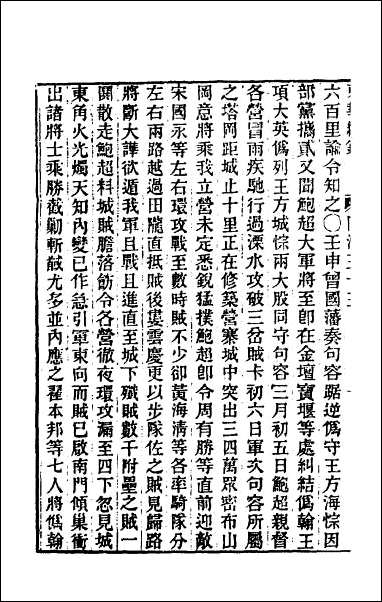 六百里諭令知之○壬申曾國藩奏句容踞逆僞守王方海悰因
部黨攜貳又聞鮑超大軍將至卽在金壇寶堰等處糾結僞翰王
項大英僞列王方城悰兩大股同守句容三月初五日鮑超親督
各營冒雨疾馳行過溧水攻破三岔賊卡初六日軍次句容所屬
之塔岡距城止十里正在修築營寨城中突出三四萬眾密布山
岡意將乘我立營未定悉銳猛撲鮑超卽令周有勝等直前迎敵
宋國永等左右環攻戰至數時賊不少卻黃海淸等各率騎隊分
左右兩路越過田隴直抵賊後婁雲慶更以步隊佐之賊見歸路
將斷大譁欲遁我軍且戰且進直至城下殱賊數千附壘之賊一
鬨散走鮑超料城賊膽落飭令各營徹夜環攻漏至四下忽見城
東角火光燭天知內變已作急引軍東向而賊已啟南門傾巢衝
出諸將士乘勝截勦斬馘尤多並內應之翟本邦等七人將僞翰